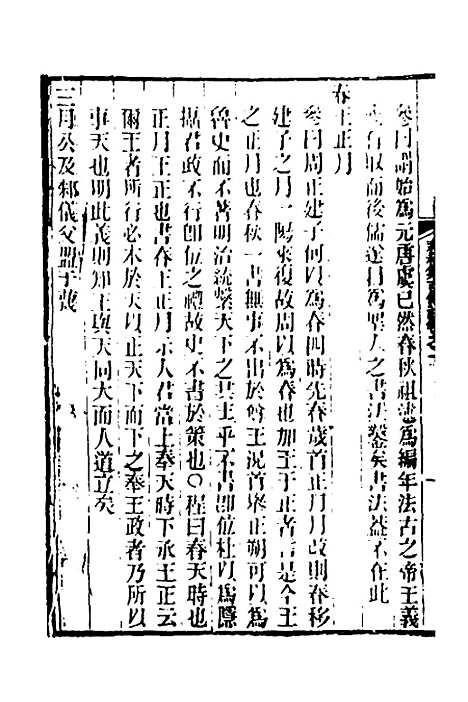 參曰謂始為元唐虞已然春秋祖述為編年法古之帝王義
有取而後儒遂目為聖人之書法鑿矣書法蓋不在此
春王正月
參曰周正建子何以為春四時先春歲首正月月改則春移
建子之月一陽來復故周以為春也加王于正者言是今王
之正月也春秋一書無事不出於尊王況首舉正朔可以為
魯史而不著明治統繫天下之共主乎不書卽位杜以為隱
攝君政不行卽位之禮故史不書於策也○程曰春天時也
正月王正也書春王正月示人君當上奉天時下承王正云
爾王者所行必本於天以正天下而下之奉王政者乃所以
事天也明此義則知王與天同大而人道立矣
三月公及邾儀父盟于蔑